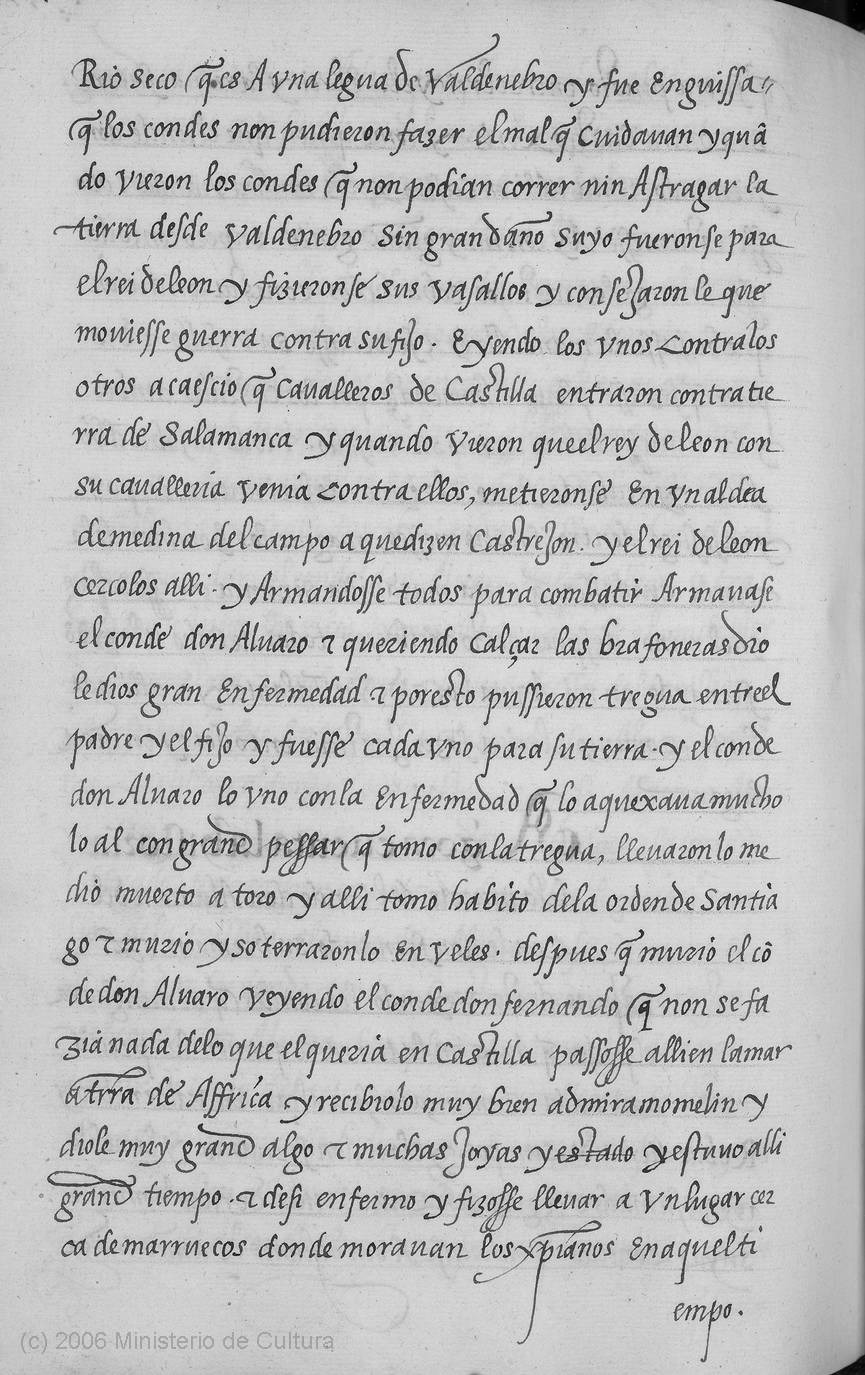 Rio seco q̃ es A vna legua de Valdenebro y fue Enguissa
q̃ los condes non pudieron fazer el mal q̃ Cuidauan y quã
do vieron los condes q̃ non podian correr nin Astragar la
tierra desde Valdenebro sin grand año suyo fueronse para
el rei de leon y fizieronse sus vasallos y consejaron le que
mouiesse guerra contra su fijo. E yendo los vnos contra los
otros acaescio q̃ Caualleros de Castilla entraron contra tie
rra de Salamanca y quando vieron que el rey de leon con
su caualleria venia contra ellos, metieronse En vn aldea
de medina del campo a que dizen Castrejon. y el rei de leon
cercolos alli. y Armandosse todos para combatir Armauase
el conde don Aluaro ⁊ queriendo calçar las brafoneras dio
le dios gran Enfermedad ⁊ por esto pussieron tregua entre el
padre y el fijo y fuesse cada vno para su tierra. y el conde
don Aluaro lo vno con la Enfermedad q̃ lo aquexaua mucho
lo al con grand pessar q̃ tomo con la tregua, lleuaron lo me
dio muerto a toro y alli tomo habito de la orden de Santia
go ⁊ murio y soterraronlo En veles. despues q̃ murio el cõ
de don Aluaro veyendo el conde don fernando q̃ non se fa
zia nada de lo que el queria en Castilla passosse allien la mar
a trr̃a de Affrica y recibiolo muy bien admiramomelin y
diole muy grand algo ⁊ muchas Joyas y estado y estuuo alli
grand tiempo. ⁊ desi enfermo y fizosse lleuar a vn lugar cer
ca de marruecos donde morauan los xp̃ianos En aquel ti
empo.
(c) 2006 Ministerio de Cultura